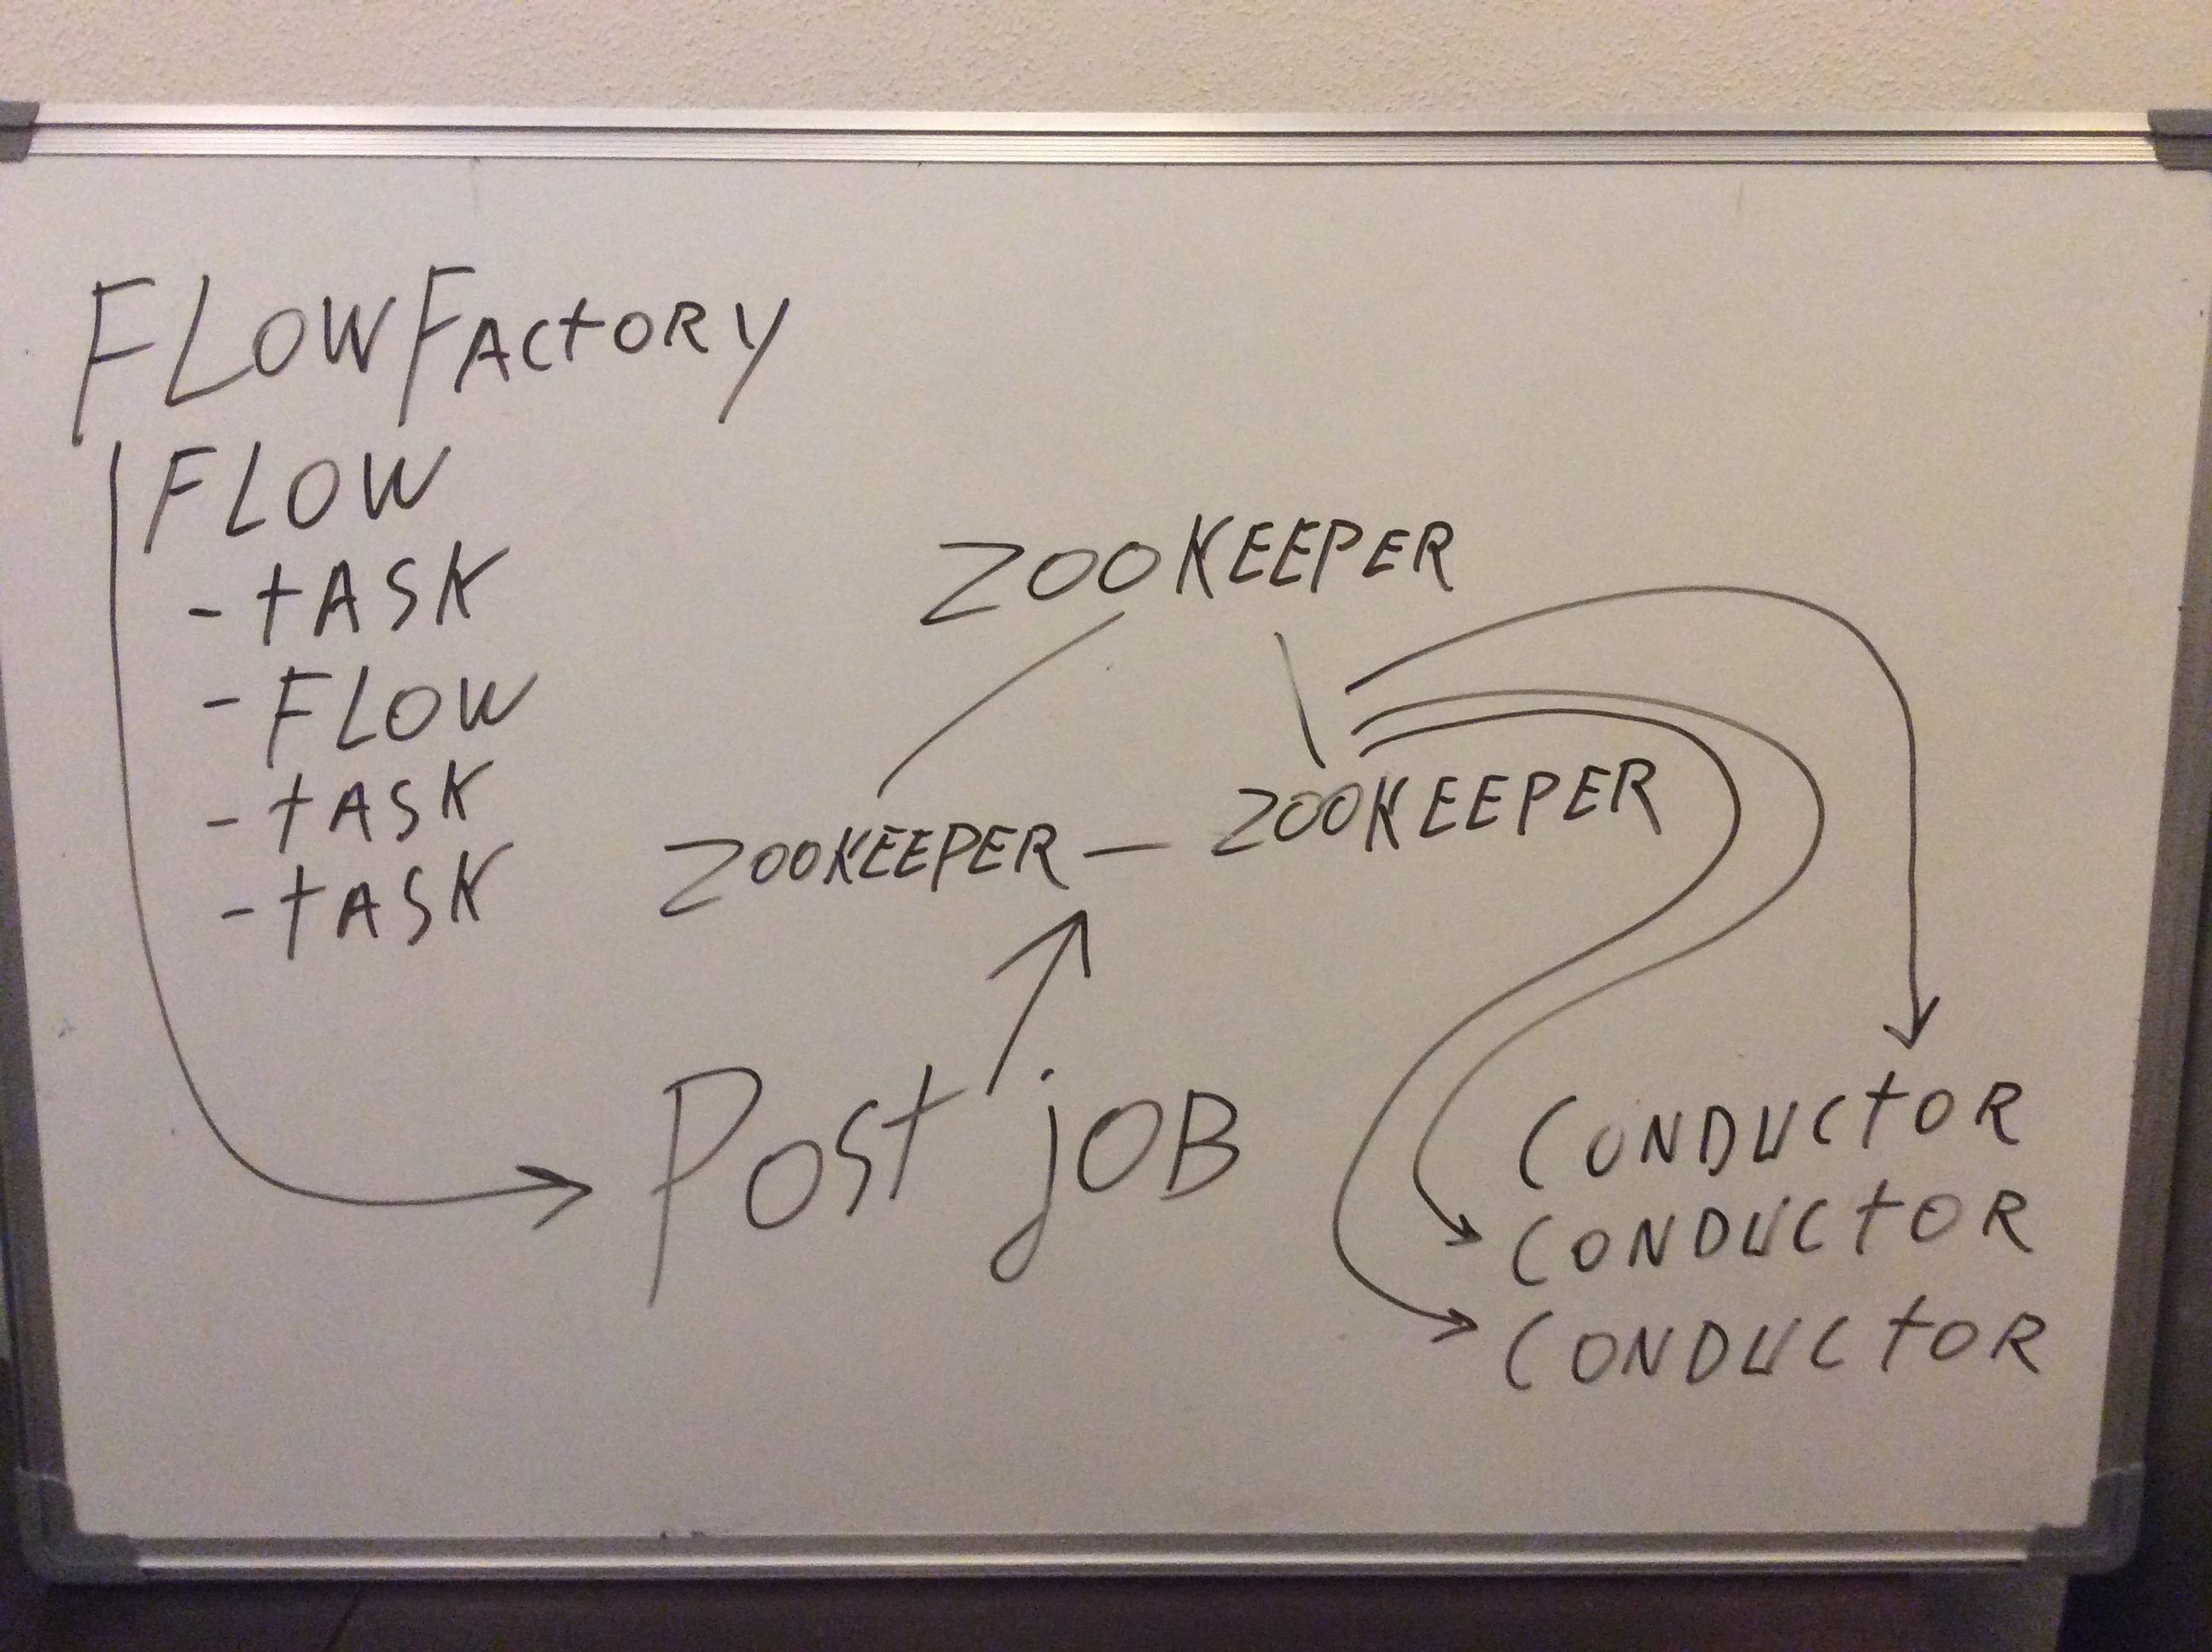 FLOWFACTORY
FLOW
- tASK
- FLOW
- tASK
- tASK
ZOOKEEPER
ZOOKEEPER — ZOOKEEPER
Post jOB
CONDUCtOR
CONDUCtOR
CONDUCtOR